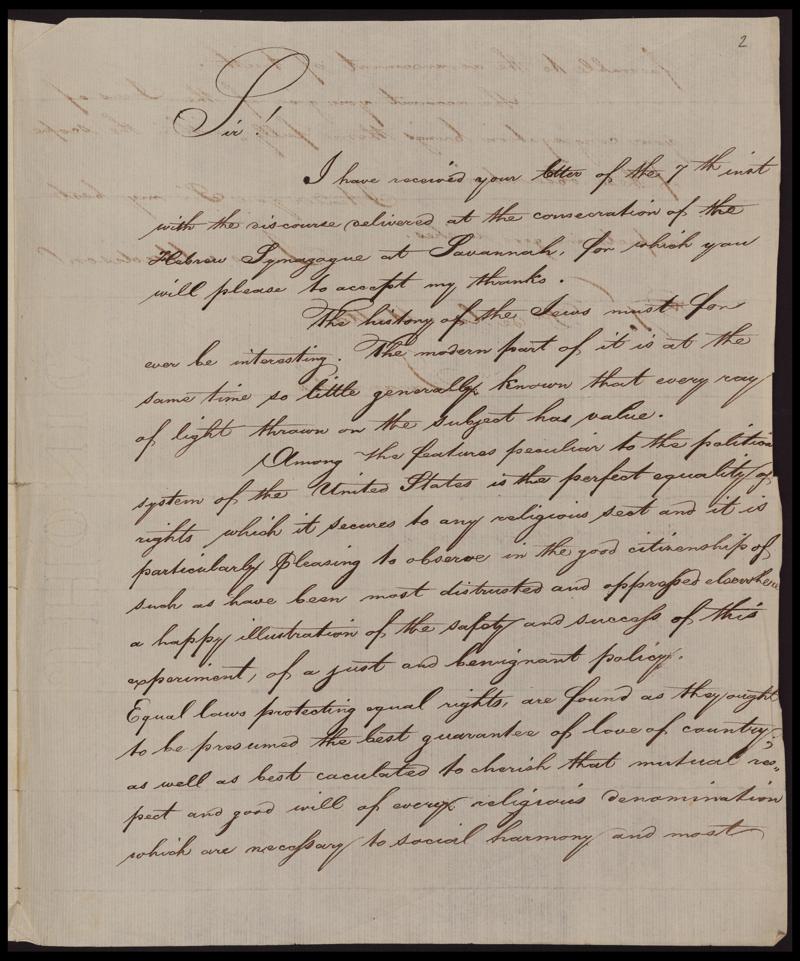 2
Sir!
I have received your letter of the 7th inst
with the discourse delivered at the consecration of the
Hebrew Synagogue at Savannah, for which you
will please to accept my thanks.
The history of the Jews must for
ever be interesting. The modern part of it is at the
same time so little generally known that every ray
of light thrown on the subject has value.
Among the features peculiar to the political
system of the United States is the perfect equality of
rights which it secures to any religious sect and it is
particularly pleasing to observe in the good citizenship of
such as have been most distrusted and oppressed elsewhere
a happy illustration of the safety and success of this
experiment, of a just and benignant policy.
Equal laws protecting equal rights, are found as they ought
to be presumed the best guarantee of love of country;
as well as best caculated to cherish that mutual res„
pect and good will of every religious denomination
which are necessary to social harmony and most